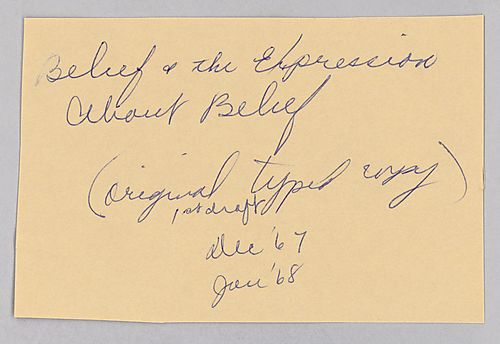 Belief & the Expression
About Belief
(original typed copy)
1st draft
Dec '67
Jan '68